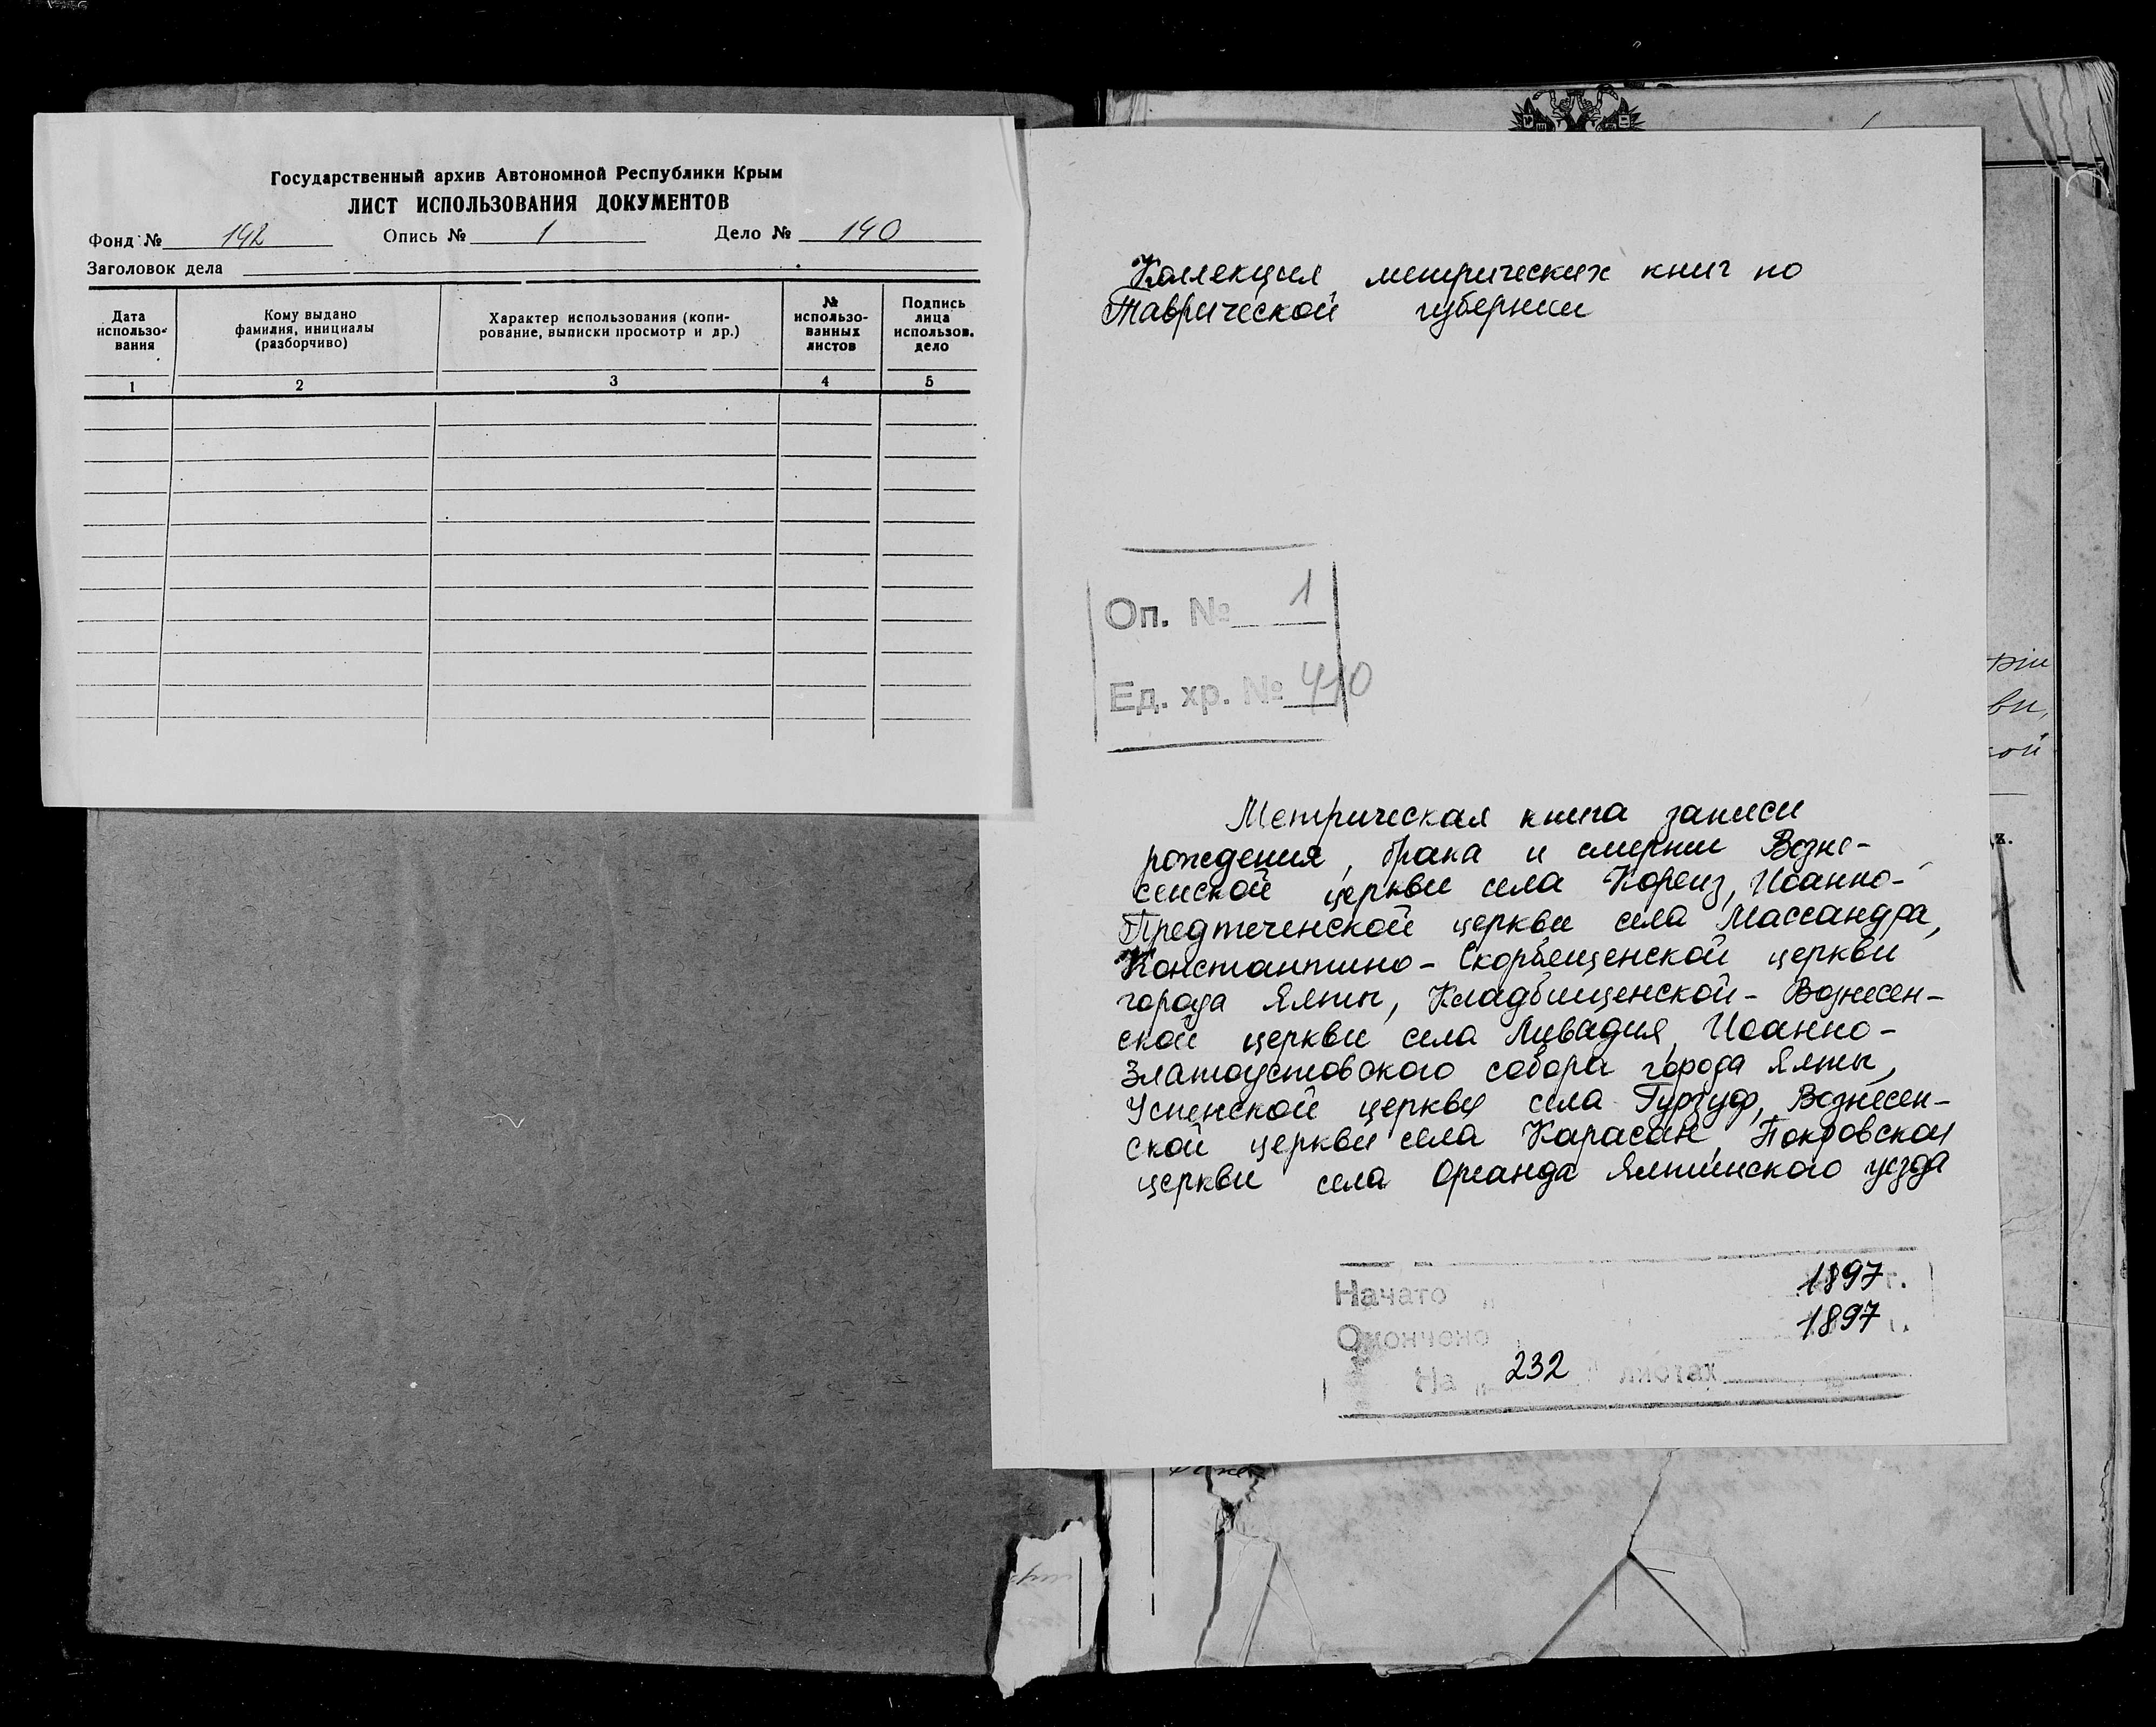 Государственный архив Автономной Республики Крым
ЛИСТ ИСПОЛЬЗОВАНИЯ ДОКУМЕНТОВ
Фонд № 142 Опись № 1 Дело № 140
Заголовок дела
Дата использо-вания
Кому выдано фамилия, инициалы (разборчиво)
Характер использования (копи-рование, выписки просмотр и др.)
№ использо-ванных листов
Подпись лица использов. дело
1 2 3 4 5
Коллекция метрических книг по
Таврической губернии
Оп. № 1
Ед. хр. №
Метрическая книга записи
рождения, брака и смерти Возне-
сенской церкви села Кореиз, Иоанно-
Предтеченской церкви села Массандра,
Константино-Скорбященской церкви
города Ялты, Кладбищенской-Вознесен-
ской церкви села Ливадия, Иоанно-
Златоустовского собора города Ялты,
Успенской церкви села Гурзуф, Вознесен-
ской церкви села Карасан, Покровской
церкви села Ореанда Ялтинского уезда
Начато 1897 г.
Окончено 1897 г.
На 232 листах